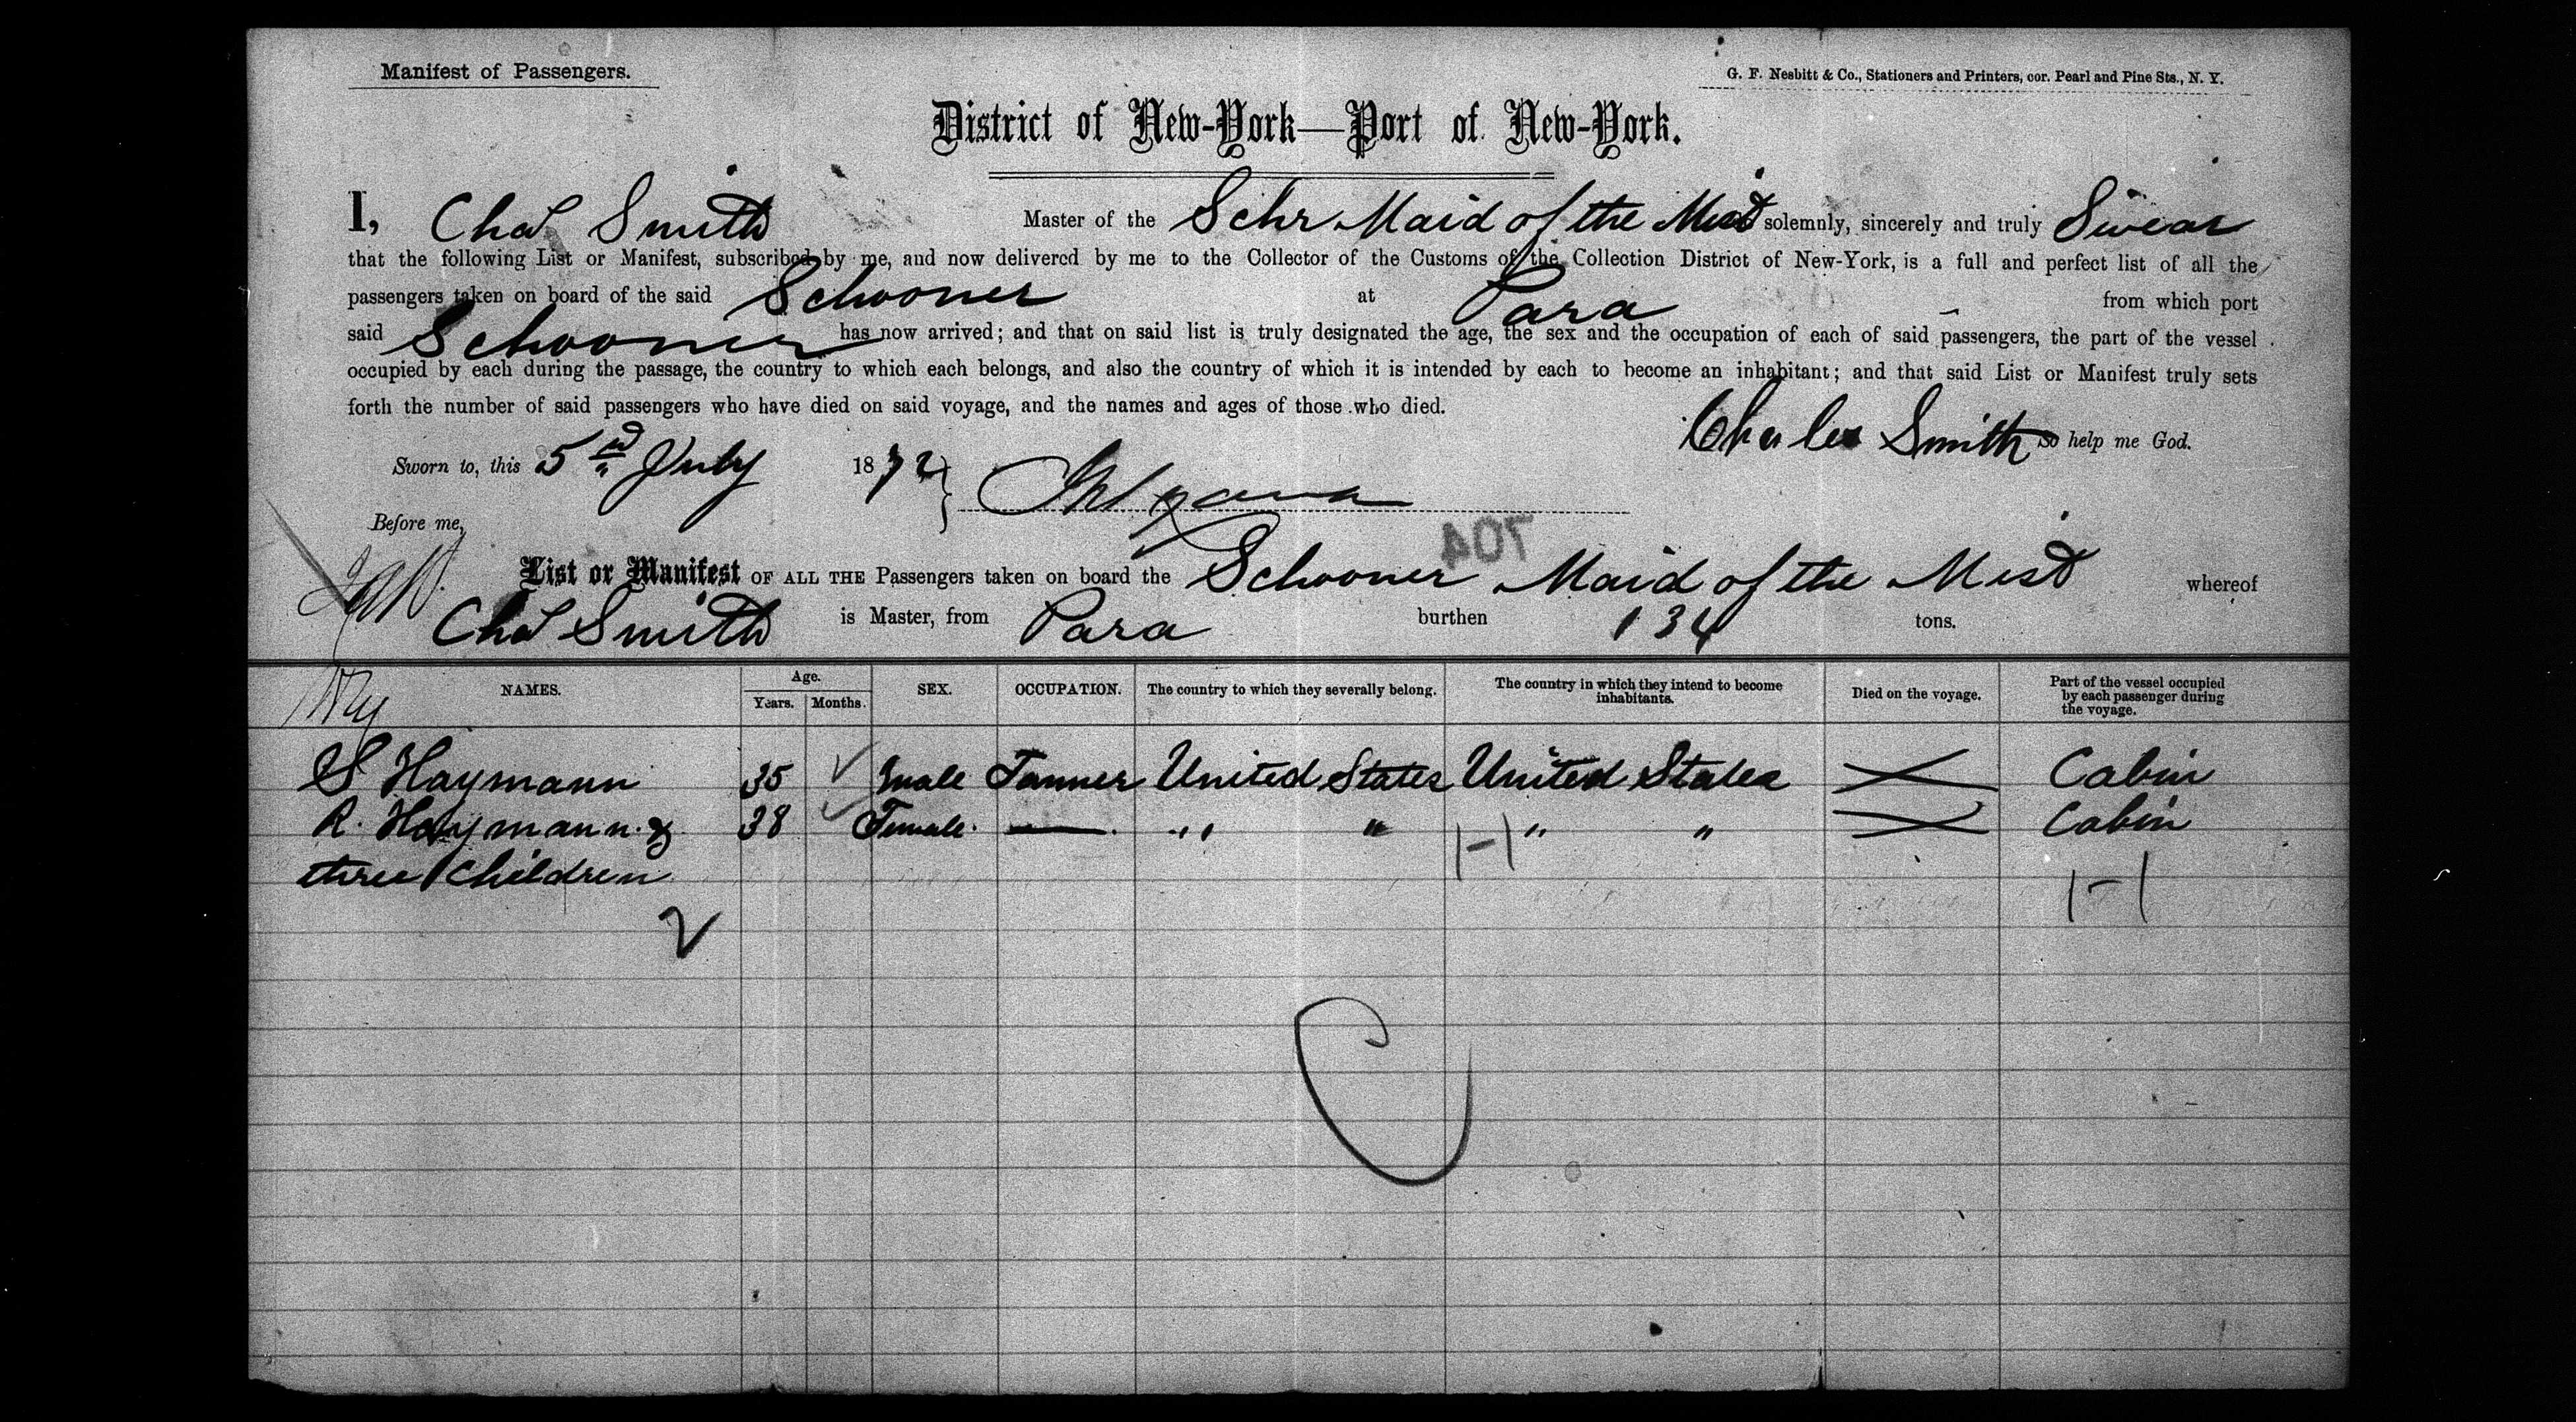 Manifest of Passengers.
G. F. Nesbitt & Co., Stationers and Printers, cor. Pearl and Pine Sts., N. Y.
District of New-York—Port of New-York.
I, Chas Smith Master of the Schr Maid of the Mist solemnly, sincerely and truly Swear
that the following List or Manifest, subscribed by me, and now delivered by me to the Collector of the Customs of the Collection District of New-York, is a full and perfect list of all the
passengers taken on board of the said Schooner at Para from which port
said Schooner has now arrived; and that on said list is truly designated the age, the sex and the occupation of each of said passengers, the part of the vessel
occupied by each during the passage, the country to which each belongs, and also the country of which it is intended by each to become an inhabitant; and that said List or Manifest truly sets
forth the number of said passengers who have died on said voyage, and the names and ages of those who died.
Charles Smith So help me God.
Sworn to, this 5th July 1872
Before me,
704
List or Manifest OF ALL THE Passengers taken on board the Schooner Maid of the Mist whereof
Chas Smith is Master, from Para burthen 134 tons.
NAMES. Age. Years. Months. SEX. OCCUPATION. The country to which they severally belong. The country in which they intend to become inhabitants. Died on the voyage. Part of the vessel occupied by each passenger during the voyage.
S Haymann 35 male Tanner United States United States Cabin
R. Haymann & 38 Female. — " " " " Cabin
three Children
2